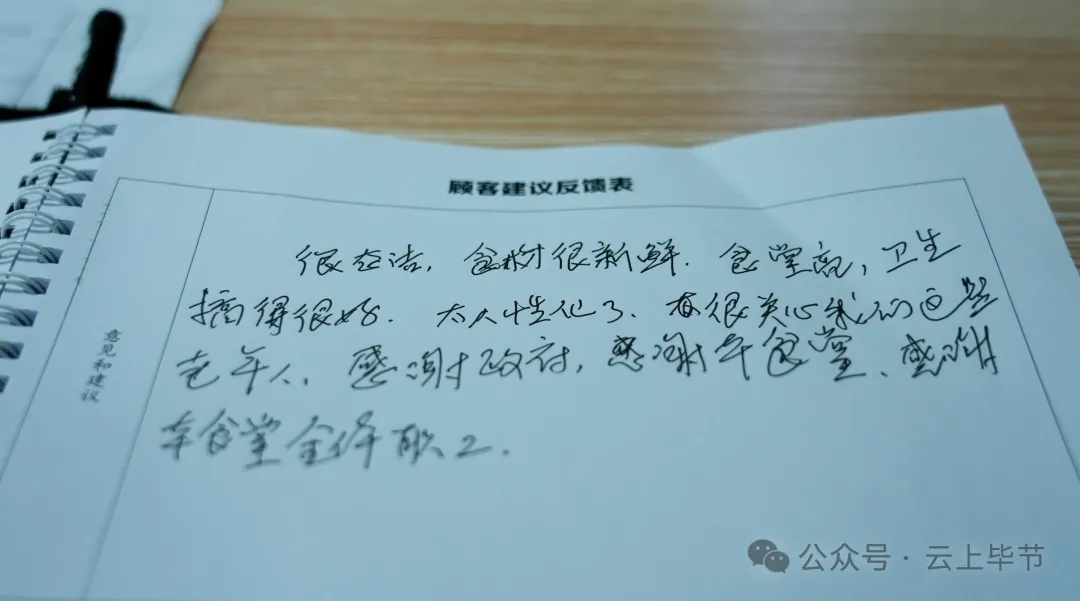 顾客建议反馈表
意见和建议
很 洁，食材很新鲜．食堂 ，卫生
搞得很好．太人性化了、 很关心我们这些
老年人、感谢政府，感谢 食堂、感谢
食堂全体职工．
公众号·云上毕节